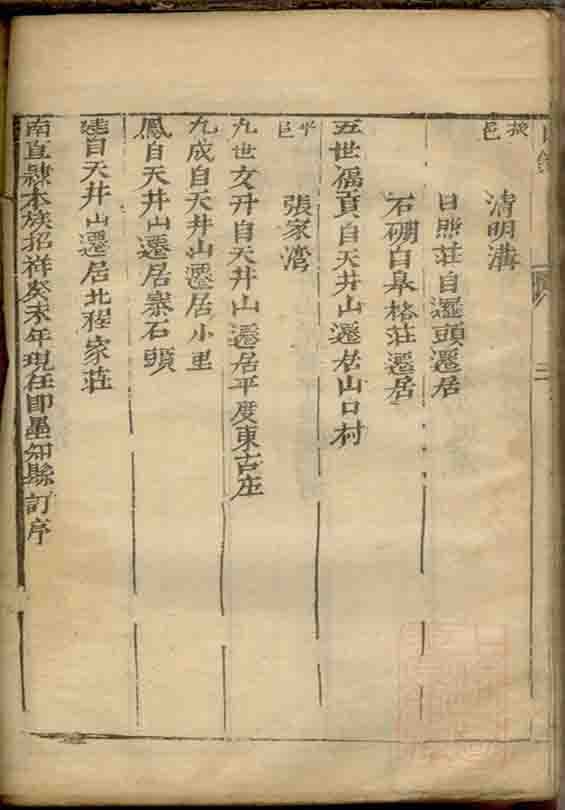 三
掖邑
清明溝
日照莊自遲頭遷居
石硼自皋格莊遷居
五世福貢自天井山遷居山口村
平邑
張家湾
九世文升自天井山遷居平度東古庄
九成自天井山遷居小里
鳳自天井山遷居寨石頭
自天井山遷居北程家莊
南直隸本族招祥癸未年現任即墨知縣訂序